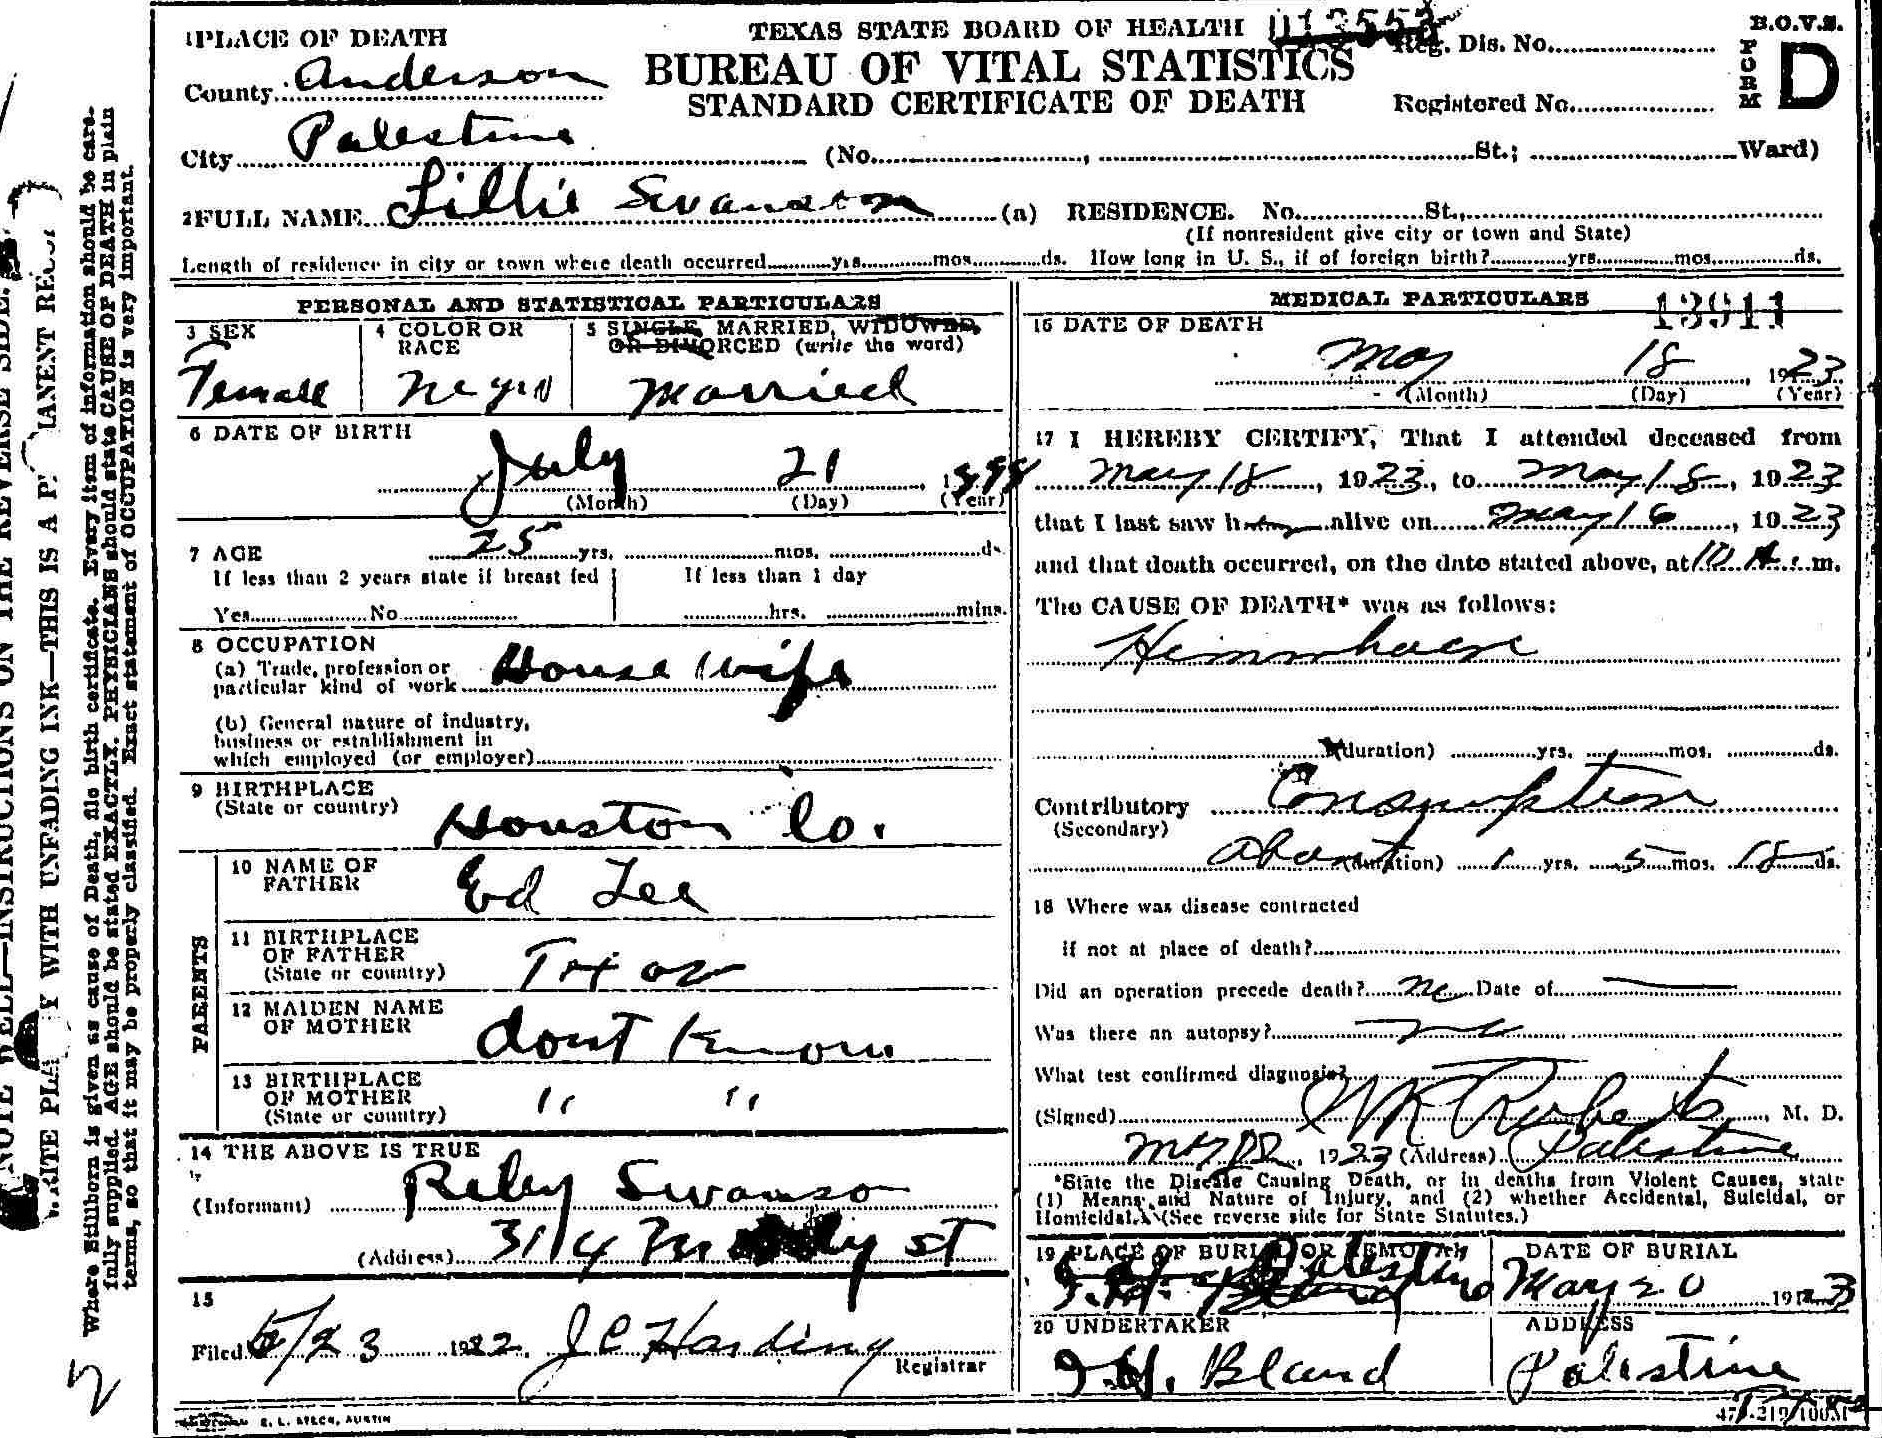 1 PLACE OF DEATH
TEXAS STATE BOARD OF HEALTH
Reg. Dis. No.
B.O.V.S.
FORM D
County Anderson
BUREAU OF VITAL STATISTICS
STANDARD CERTIFICATE OF DEATH
Registered No.
City Palestine (No. , St.; Ward)
2 FULL NAME Lillie Swanson (a) RESIDENCE. No. St.,
(If nonresident give city or town and State)
Length of residence in city or town where death occurred yrs. mos. ds. How long in U. S., if of foreign birth? yrs. mos. ds.
PERSONAL AND STATISTICAL PARTICULARS
3 SEX
Female
4 COLOR OR RACE
Negro
5 SINGLE, MARRIED, WIDOWED,
OR DIVORCED (write the word)
Married
6 DATE OF BIRTH
July 21
(Month) (Day) (Year)
7 AGE 25 yrs. mos. ds.
If less than 2 years state if breast fed
Yes No
If less than 1 day
hrs. mins.
8 OCCUPATION
(a) Trade, profession or
particular kind of work House Wife
(b) General nature of industry,
business or establishment in
which employed (or employer)
9 BIRTHPLACE
(State or country) Houston Co.
PARENTS
10 NAME OF
FATHER Ed Lee
11 BIRTHPLACE
OF FATHER
(State or country)
12 MAIDEN NAME
OF MOTHER dont Know
13 BIRTHPLACE
OF MOTHER
(State or country) " "
14 THE ABOVE IS TRUE
(Informant) Riley Swanson
(Address) 314 st
15
Filed 5/23 1922. J C Harding
Registrar
E. L. STECK, AUSTIN
MEDICAL PARTICULARS 13911
16 DATE OF DEATH
May 18 1923
(Month) (Day) (Year)
17 I HEREBY CERTIFY, That I attended deceased from
May 18, 1923, to May 18, 1923
that I last saw h alive on May 16, 1923
and that death occurred, on the date stated above, at 10 A. m.
The CAUSE OF DEATH* was as follows:
(duration) yrs. mos. ds.
Contributory Consumption
(Secondary)
About (duration) 1 yrs. 5 mos. 18 ds.
18 Where was disease contracted
if not at place of death?
Did an operation precede death? no Date of
Was there an autopsy? no
What test confirmed diagnosis?
(Signed) Roberts, M. D.
1923 (Address) Palestine
*State the Disease Causing Death, or in deaths from Violent Causes, state
(1) Means and Nature of Injury, and (2) whether Accidental, Suicidal, or
Homicidal. (See reverse side for State Statutes.)
19 PLACE OF BURIAL OR REMOVAL
Palestine
DATE OF BURIAL
May 20 1923
20 UNDERTAKER
J. H. Bland
ADDRESS
Palestine
NOTE WELL—INSTRUCTIONS ON THE REVERSE SIDE.
WRITE PLAINLY WITH UNFADING INK—THIS IS A PERMANENT RECORD
Where Stillborn is given as cause of Death, file birth certificate. Every item of information should be care-
fully supplied. AGE should be stated EXACTLY. PHYSICIANS should state CAUSE OF DEATH in plain
terms, so that it may be properly classified. Exact statement of OCCUPATION is very important.